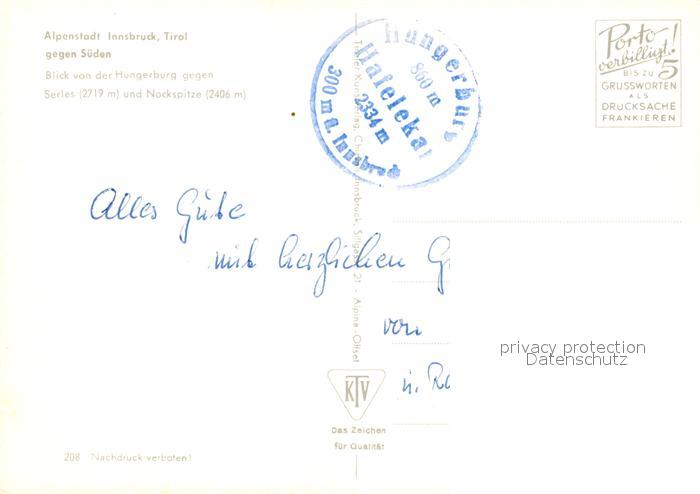 Alpenstadt Innsbruck, Tirol
gegen Süden
Blick von der Hungerburg gegen
Serles (2719 m) und Nockspitze (2406 m)
Hungerburg
860 m
Hafelekar
2334 m
300 m ü. Innsbruck
Porto
verbilligt!
BIS ZU 5
GRUSSWORTEN
ALS
DRUCKSACHE
FRANKIEREN
Alles Gute
mit herzlichen G
von
u. Ro
Tiroler Kunstverlag, Innsbruck, 21 - Alpine-Offset
privacy protection
Datenschutz
KTV
Das Zeichen
für Qualität
208 Nachdruck verboten!